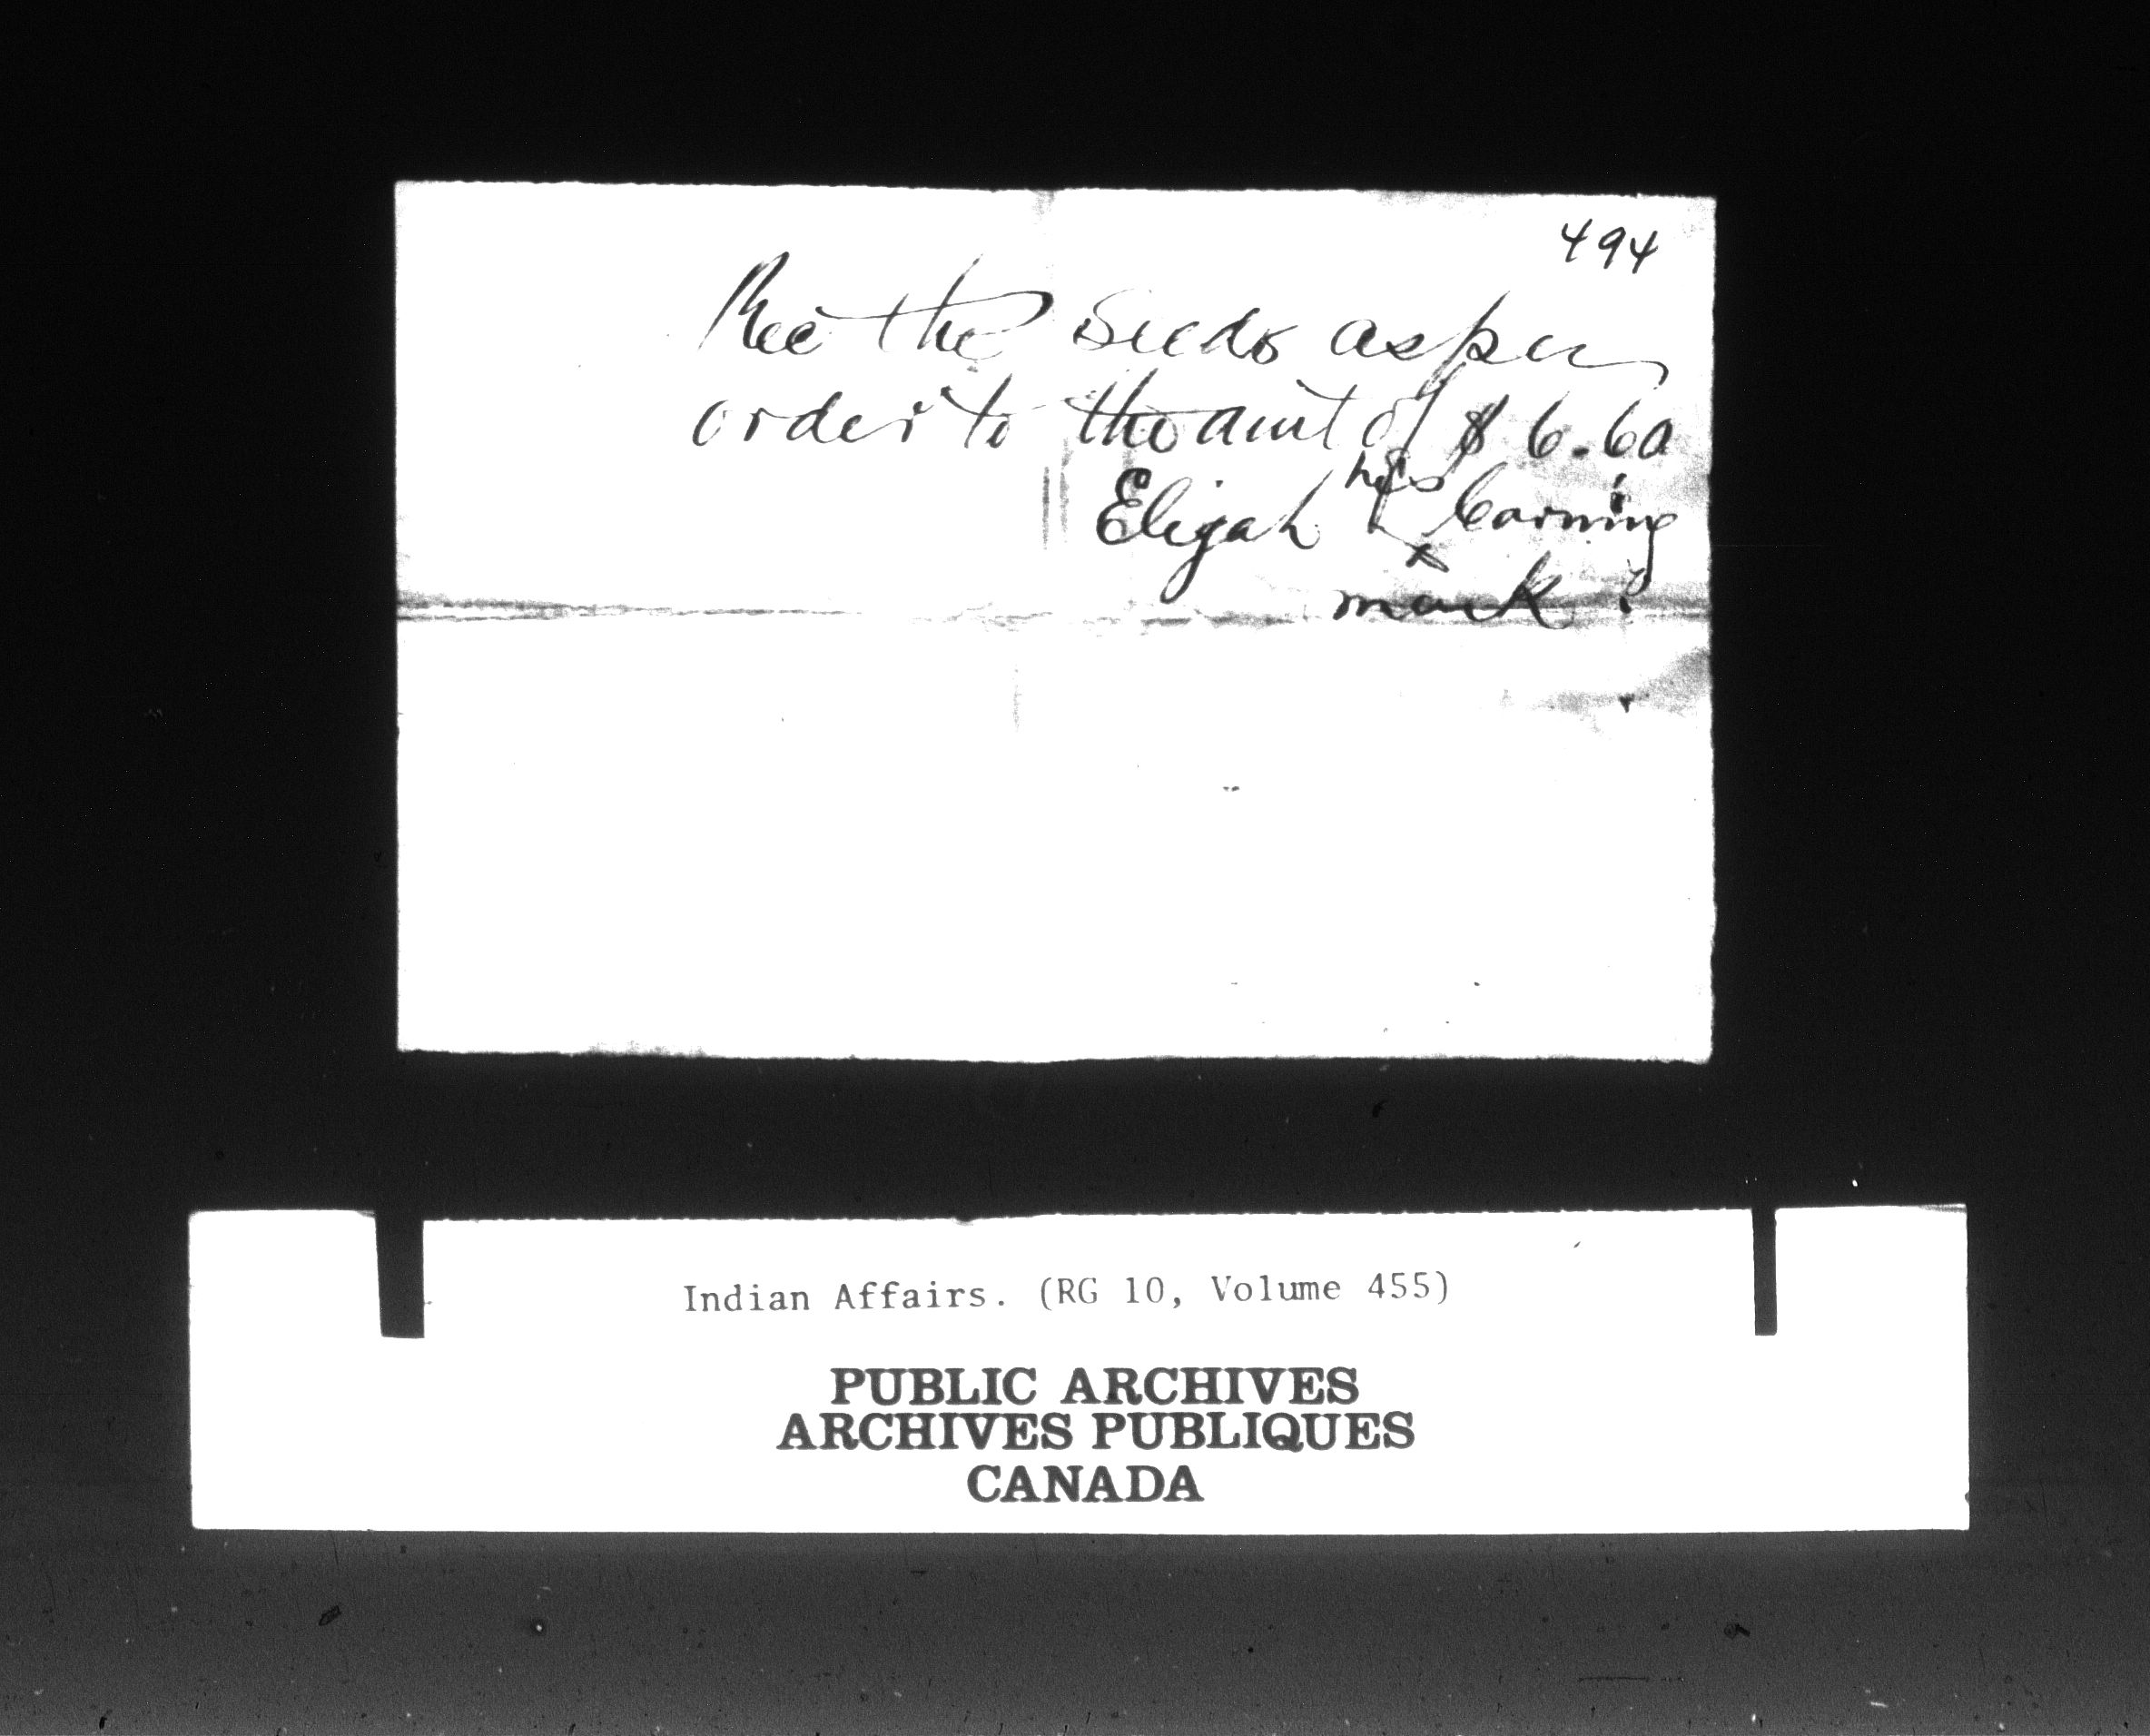 494
Rec the Seeds as per
order to the amt of $6.60
his
Elijah x Corning
mark
Indian Affairs. (RG 10, Volume 455)
PUBLIC ARCHIVES
ARCHIVES PUBLIQUES
CANADA